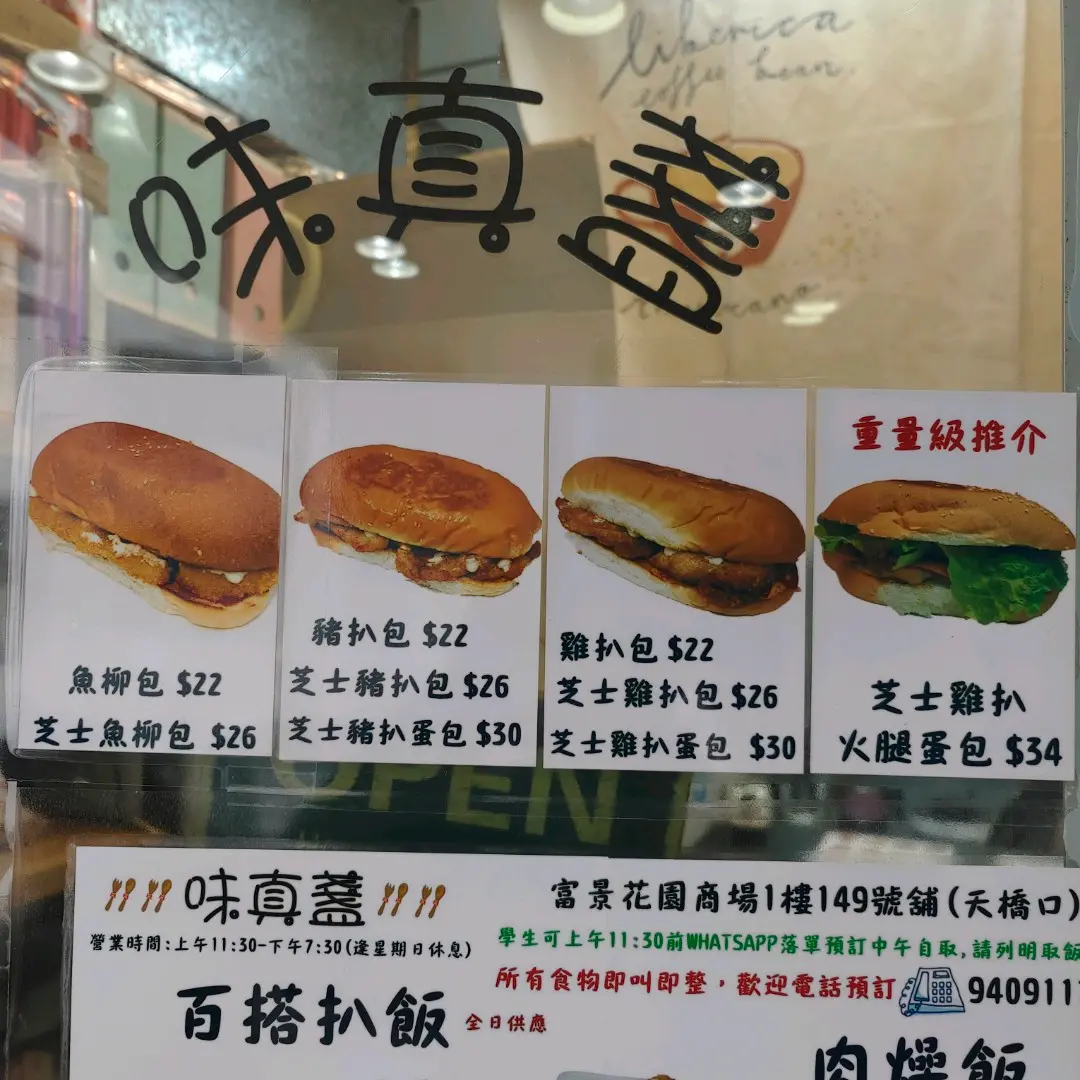 liberica
coffee bean.
味真盞
魚柳包 $22
芝士魚柳包 $26
豬扒包 $22
芝士豬扒包 $26
芝士豬扒蛋包 $30
雞扒包 $22
芝士雞扒包 $26
芝士雞扒蛋包 $30
重量級推介
芝士雞扒
火腿蛋包 $34
OPEN
味真盞
營業時間:上午11:30-下午7:30(逢星期日休息)
富景花園商場1樓149號舖(天橋口)
學生可上午11:30前WHATSAPP落單預訂中午自取,請列明取飯
所有食物即叫即整，歡迎電話預訂
940911
百搭扒飯 全日供應
肉燥飯